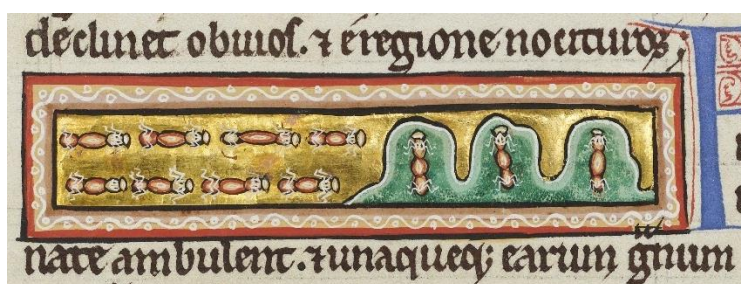 declinet obuios. ⁊ e regione nocituros;
nate ambulent. ⁊ unaqueq; earum gnum